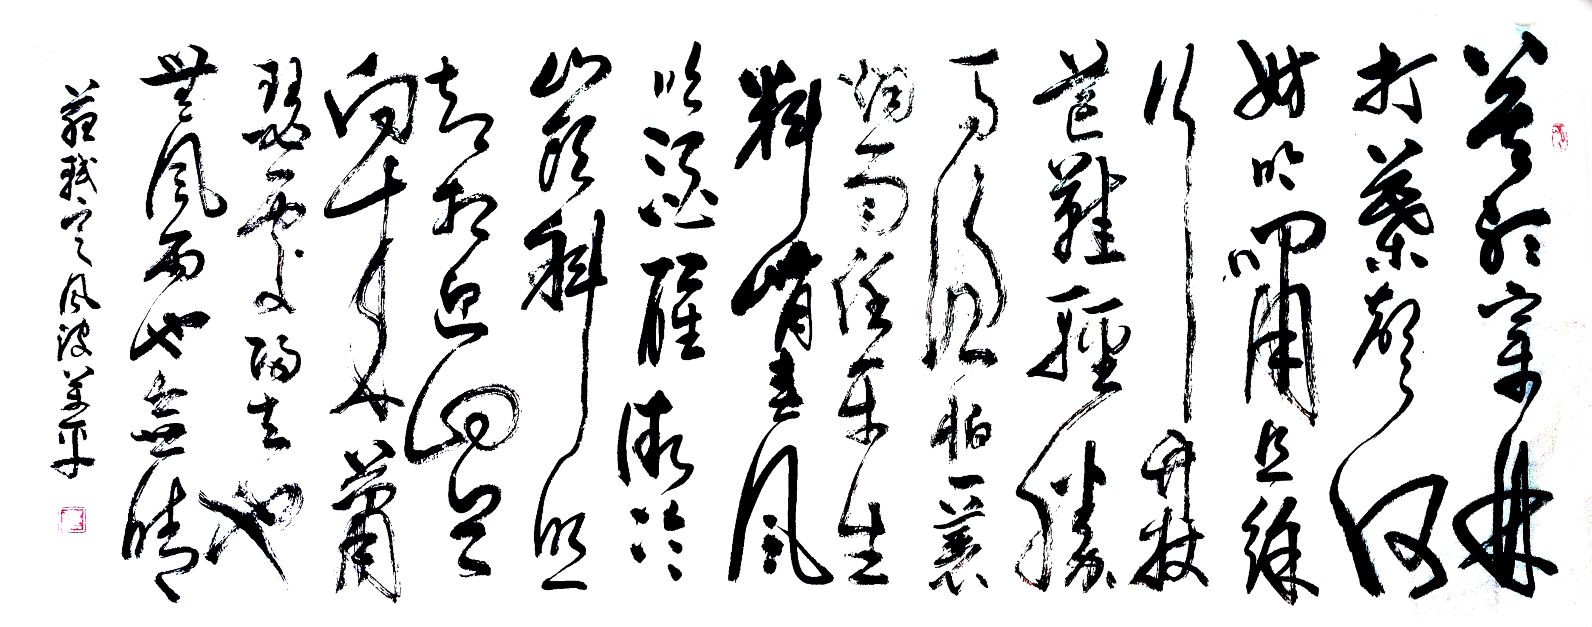 莫聽穿林
打葉聲何
妨吟嘯且徐
行竹杖
芒鞋輕勝
馬誰怕一蓑
烟雨任平生
料峭春風
吹酒醒微冷
山頭斜照
却相迎回首
向來蕭
瑟處歸去也
無風雨也無晴
蘇軾定風波